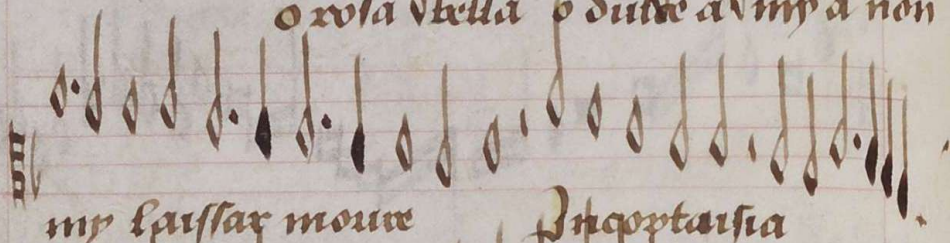 o rosa bella o dulce a my a non
my laissar morire In cortaisia